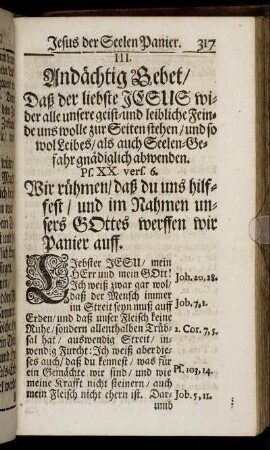 Jesus der Seelen Panier. 317
III.
Andächtig Gebet/
Daß der liebste JESUS wi-
der alle unsere geist- und leibliche Fein-
de uns wolle zur Seiten stehen/ und so
wol Leibes/ als auch Seelen-Ge-
fahr gnädiglich abwenden.
Ps. XX. vers. 6.
Wir rühmen/ daß du uns hilf-
fest/ und im Nahmen un-
sers GOttes werffen wir
Panier auff.
LIebster JESU/ mein
HErr und mein GOtt! Joh. 20, 28.
Ich weiß zwar gar wol/
daß der Mensch immer
im Streit seyn muß auff Job. 7, 1.
Erden/ und daß unser Fleisch keine
Ruhe/ sondern allenthalben Trüb- 2. Cor. 7, 5.
sal hat/ auswendig Streit/ in-
wendig Furcht: Ich weiß aber die-
ses auch/ daß du kennest/ was für
ein Gemächte wir sind/ und wie Ps. 103, 14.
meine Krafft nicht steinern/ auch
mein Fleisch nicht ehern ist. Dar- Job. 5, 11.
umb